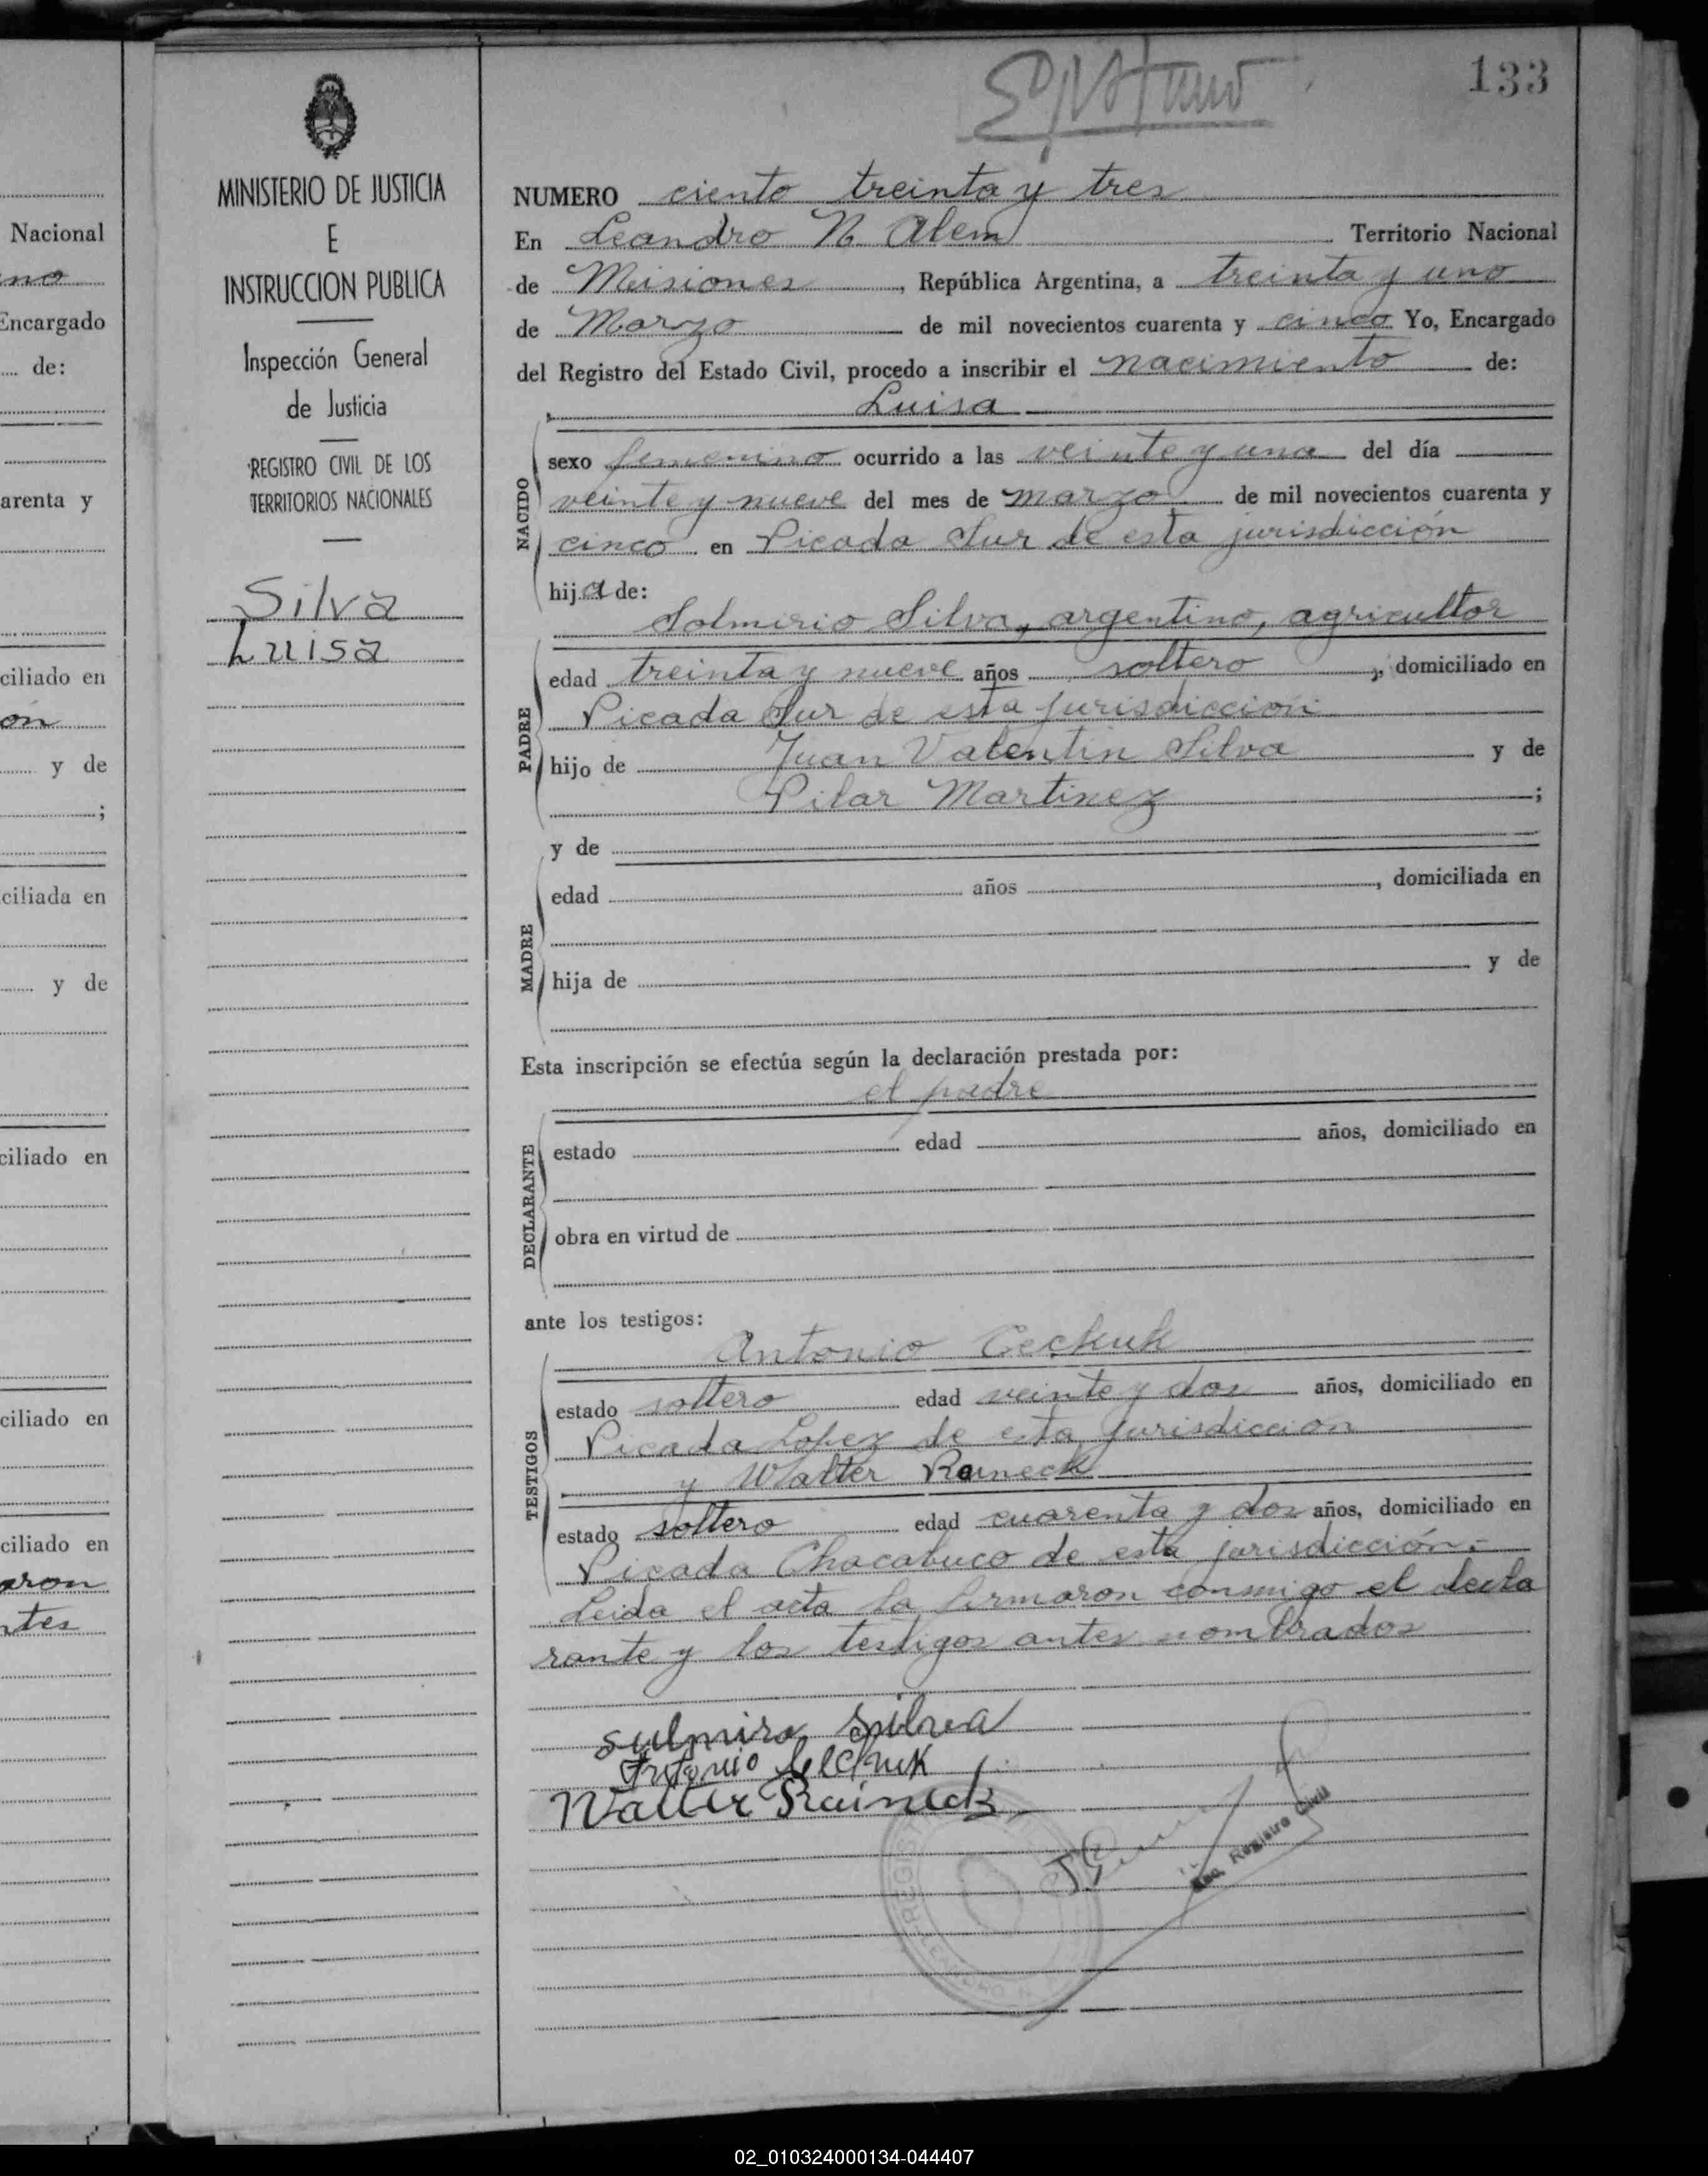 133
MINISTERIO DE JUSTICIA
E
INSTRUCCION PUBLICA
Inspección General
de Justicia
REGISTRO CIVIL DE LOS
TERRITORIOS NACIONALES
Silva
Luisa
Nacional
no
Encargado
de:
arenta y
ciliado en
ón
y de
;
ciliada en
y de
ciliado en
ciliado en
ciliado en
aron
ntes
NUMERO ciento treinta y tres
En Leandro N Alem Territorio Nacional
de Misiones, República Argentina, a treinta y uno
de Marzo de mil novecientos cuarenta y cinco Yo, Encargado
del Registro del Estado Civil, procedo a inscribir el nacimiento de:
Luisa
NACIDO
sexo femenino ocurrido a las veinte y una del día
veinte y nueve del mes de marzo de mil novecientos cuarenta y
cinco en Picada Sur de esta jurisdicción
hija de:
Solmirio Silva, argentino, agricultor
PADRE
edad treinta y nueve años soltero, domiciliado en
Picada Sur de esta jurisdicción
hijo de Juan Valentin Silva y de
Pilar Martinez ;
y de
MADRE
edad años , domiciliada en
hija de y de
Esta inscripción se efectúa según la declaración prestada por:
el padre
DECLARANTE
estado edad años, domiciliado en
obra en virtud de
ante los testigos:
Antonio Cechuk
TESTIGOS
estado soltero edad veinte y dos años, domiciliado en
Picada Lopez de esta jurisdiccion
y Walter Raineck
estado soltero edad cuarenta y dos años, domiciliado en
Picada Chacabuco de esta jurisdicción.-
Leida el acta la firmaron conmigo el decla
rante y los testigos antes nombrados
sulmiro Silva
Antonio
Walter Raineck
Enc. Registro Civil
02_010324000134-044407